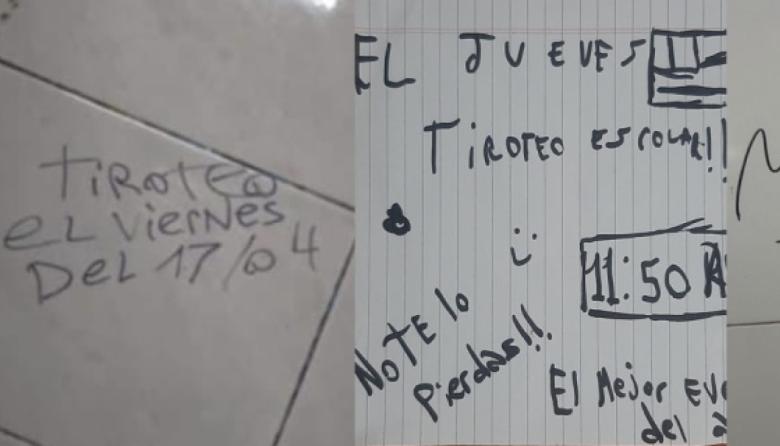 TiRoteo
eL vierNes
DeL 17/04
EL JUEVES
TiROTEO ESCOLAR!!
11:50 A
NOTE lo
pierdas!!
El Mejor
del